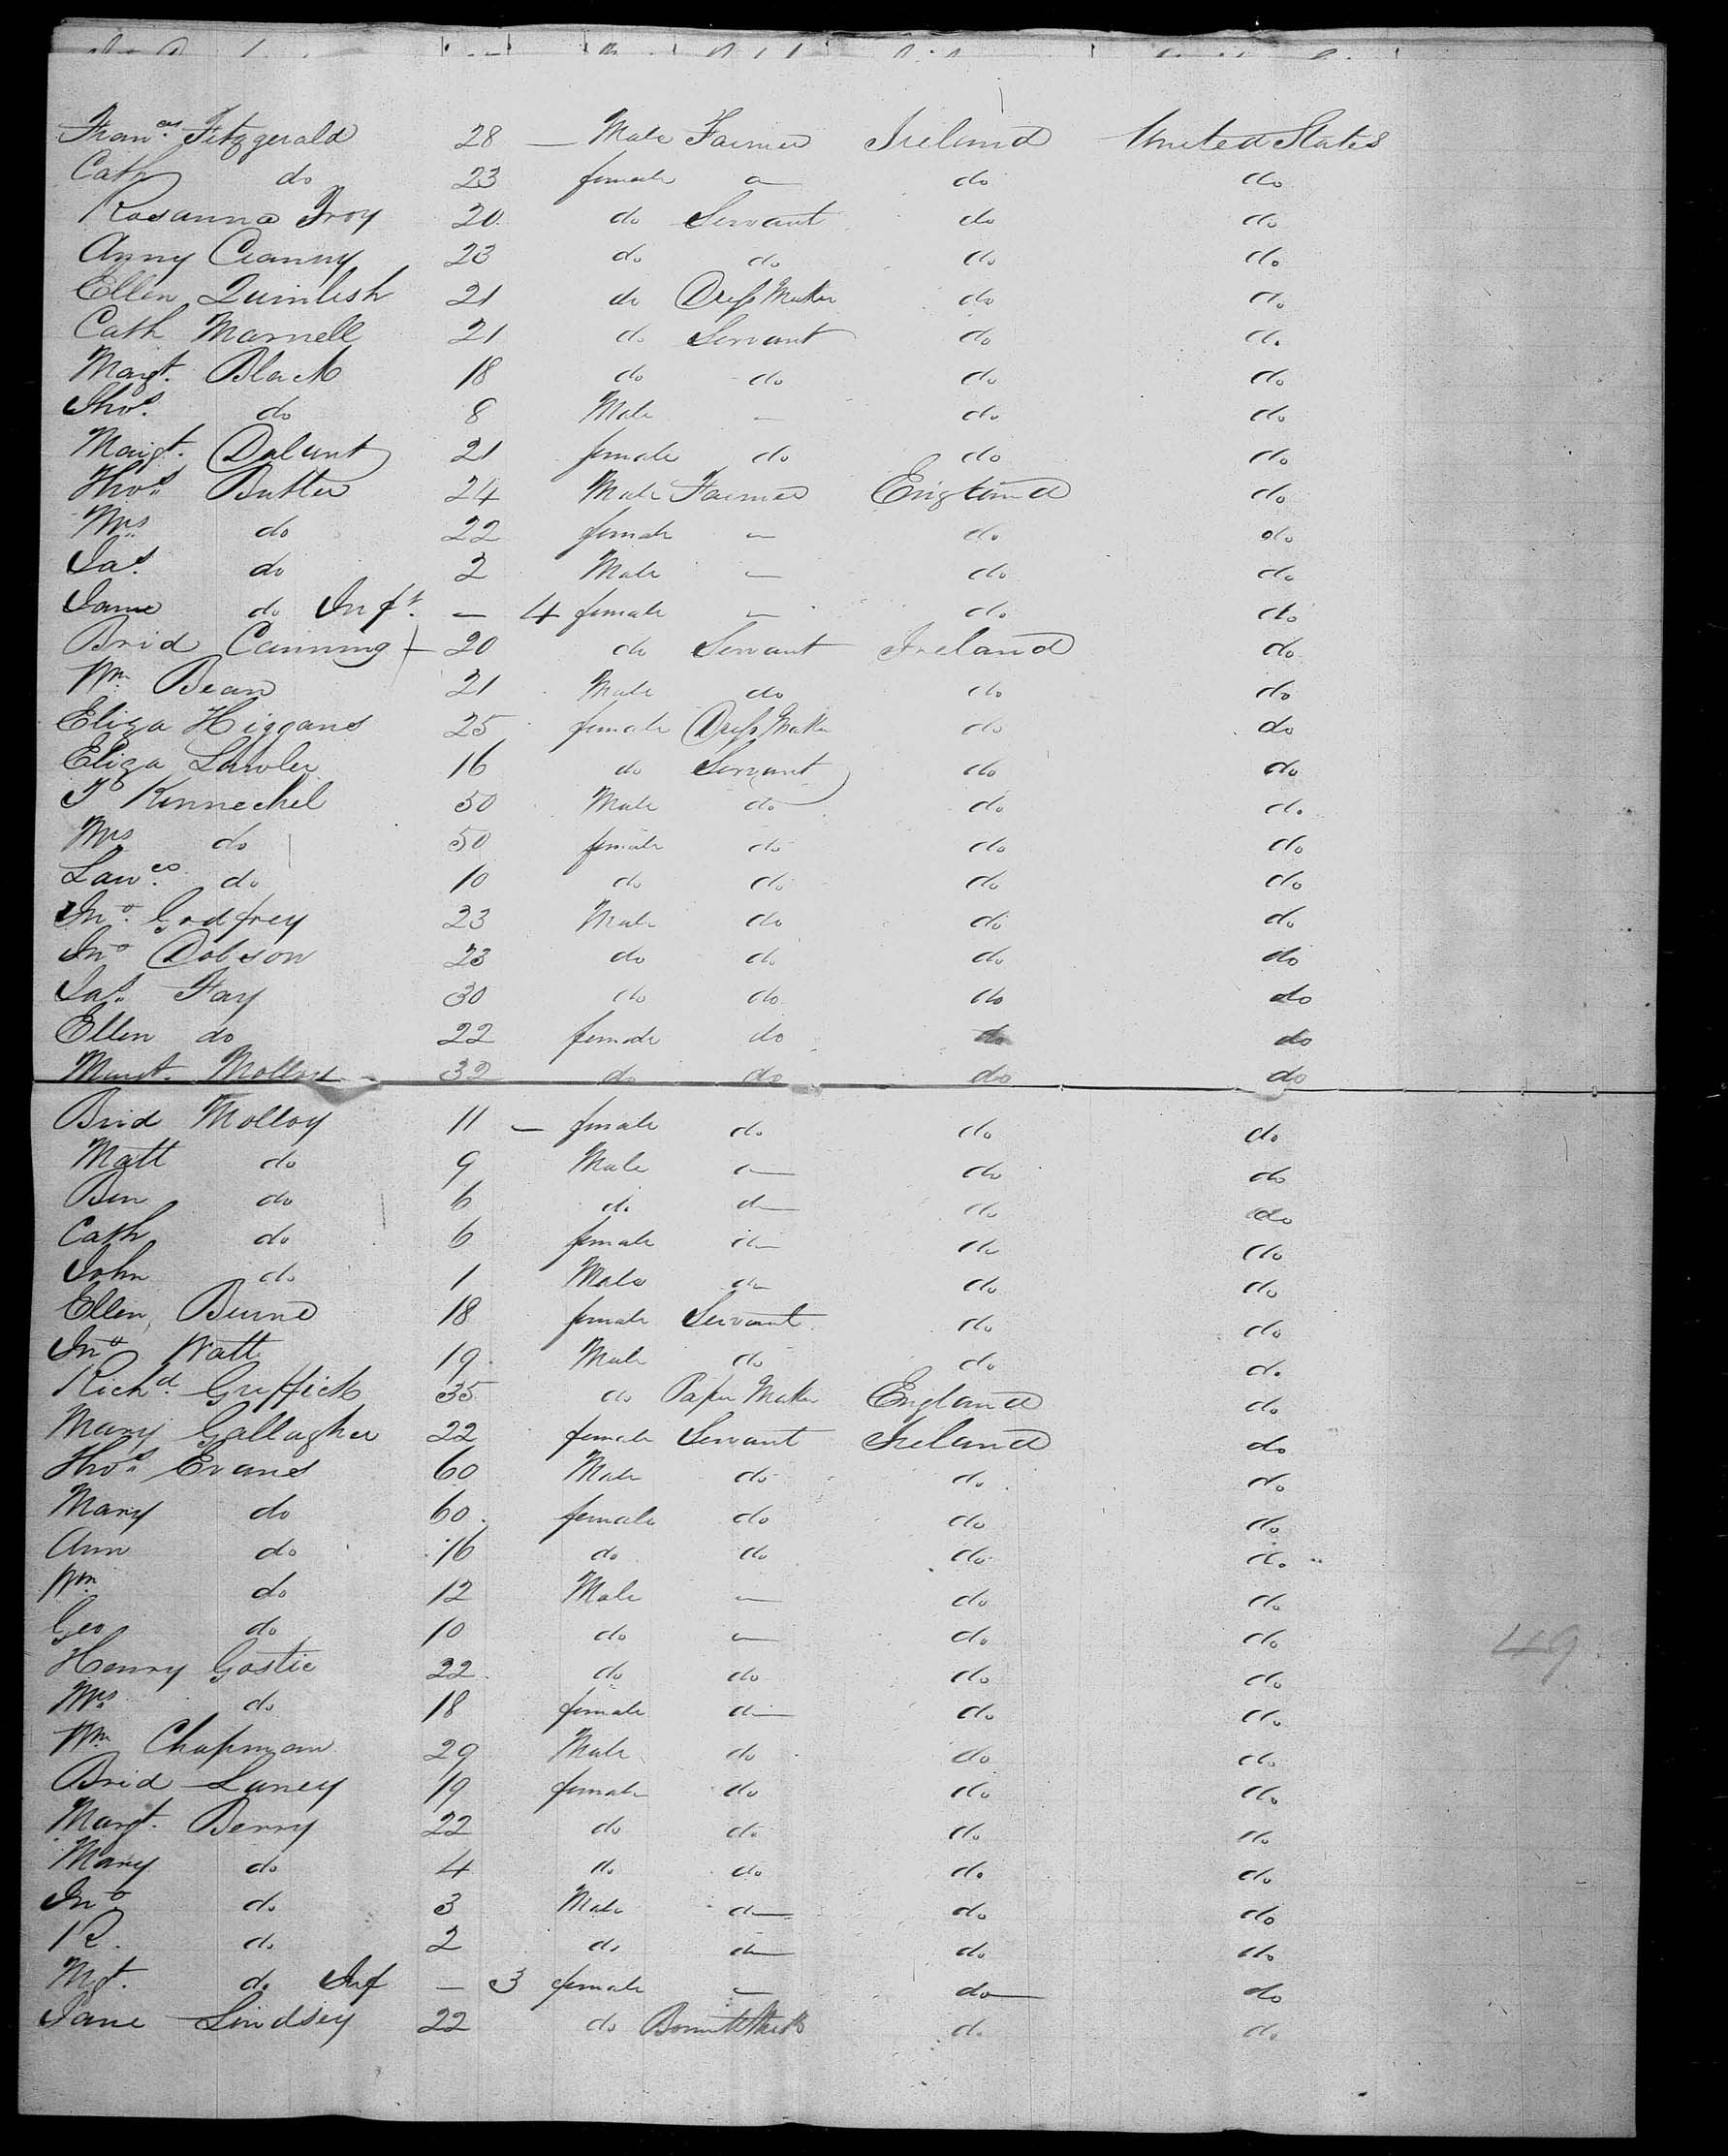 Fran.ces Fitzgerald 28 — Male Farmer Ireland United States
Cath do 23 female — do do
Rosanna Troy 20 do Servant do do
Anny Cranny 23 do do do do
Ellen Quinlish 21 do Dress Maker do do
Cath Marnell 21 do Servant do do
Margt. Black 18 do do do do
Thos. do 8 Male — do do
Margt. 21 female do do do
Thos. Butler 24 Male Farmer England do
Mrs. do 22 female — do do
Jas. do 2 Male — do do
Jane do Inft. — 4 female — do do
Brid Canning 20 do Servant Ireland do
Wm. Bean 21 Male do do do
Eliza Higgans 25 female Dress Maker do do
Eliza Lawler 16 do Servant do do
Kennechel 50 Male do do do
Mrs do 50 female do do do
Lawce. do 10 do do do do
Jno. Godfrey 23 Male do do do
Jno Dobson 23 do do do do
Jas. Fay 30 do do do do
Ellen do 22 female do do do
Margt. Molloy 32 do do do do
Brid Molloy 11 — female do do do
Matt do 9 Male — do do
Ben do 6 do do do do
Cath do 6 female do do do
John do 1 Male do do do
Ellen Burne 18 female Servant do do
Jno. Watt 19 Male do do do
Richd. Griffick 35 do Paper Maker England do
Mary Gallagher 22 female Servant Ireland do
Thos. Evans 60 Male do do do
Mary do 60 female do do do
Ann do 16 do do do do
Wm. do 12 Male — do do
Geo do 10 do — do do
Henry Gostic 22 do do do do
Mrs. do 18 female do do do
Wm. Chapman 29 Male do do do
Brid Laney 19 female do do do
Margt. Berry 22 do do do do
Mary do 4 do do do do
Jno. do 3 Male do do do
R. do 2 do do do do
Mgt. do Inf — 3 female — do do
Jane Lindsey 22 do do do
49